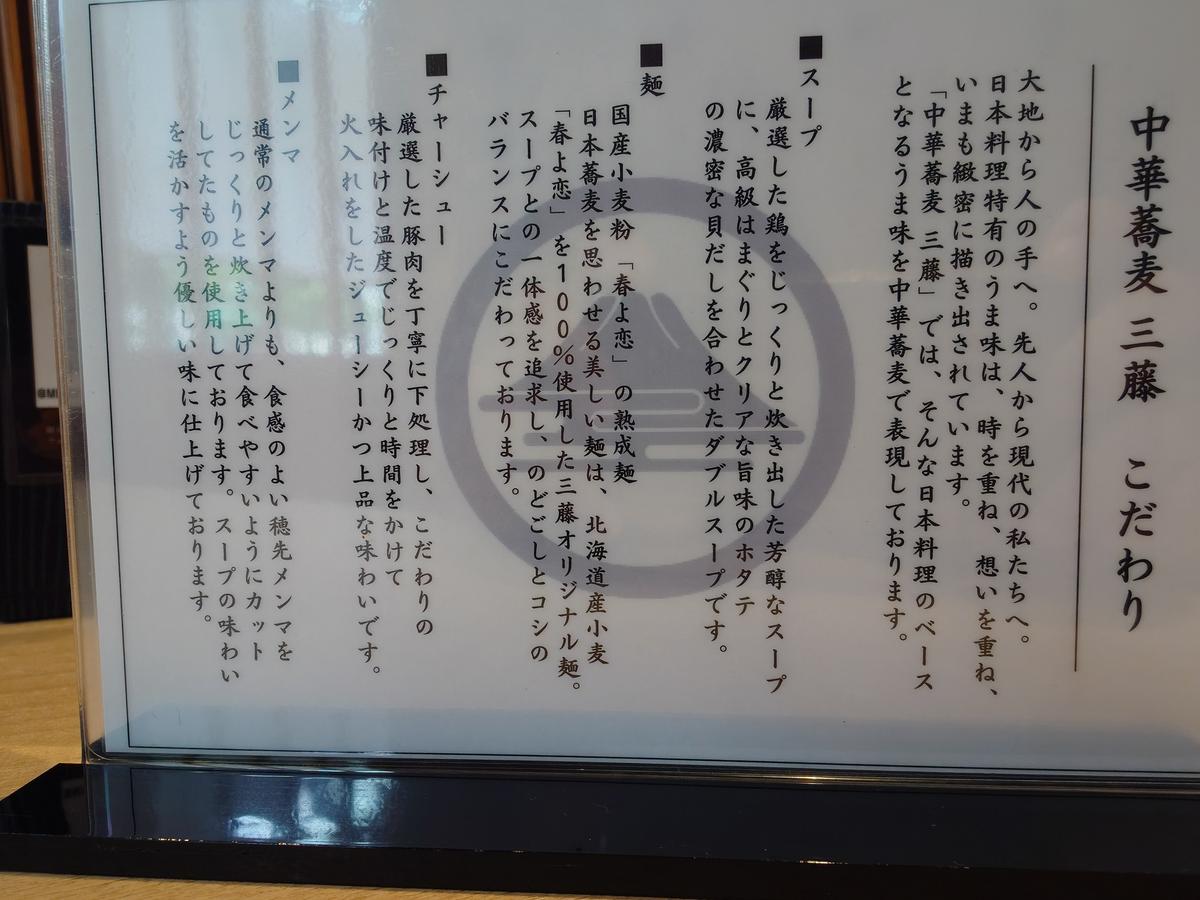 中華蕎麦 三藤　こだわり
大地から人の手へ。先人から現代の私たちへ。
日本料理特有のうま味は、時を重ね、想いを重ね、
いまも緻密に描き出されています。
「中華蕎麦 三藤」では、そんな日本料理のベース
となるうま味を中華蕎麦で表現しております。
■スープ
厳選した鶏をじっくりと炊き出した芳醇なスープ
に、高級はまぐりとクリアな旨味のホタテ
の濃密な貝だしを合わせたダブルスープです。
■麺
国産小麦粉「春よ恋」の熟成麺
日本蕎麦を思わせる美しい麺は、北海道産小麦
「春よ恋」を100％使用した三藤オリジナル麺。
スープとの一体感を追求し、のどごしとコシの
バランスにこだわっております。
■チャーシュー
厳選した豚肉を丁寧に下処理し、こだわりの
味付けと温度でじっくりと時間をかけて
火入れをしたジューシーかつ上品な味わいです。
■メンマ
通常のメンマよりも、食感のよい穂先メンマを
じっくりと炊き上げて食べやすいようにカット
してたものを使用しております。スープの味わい
を活かすよう優しい味に仕上げております。